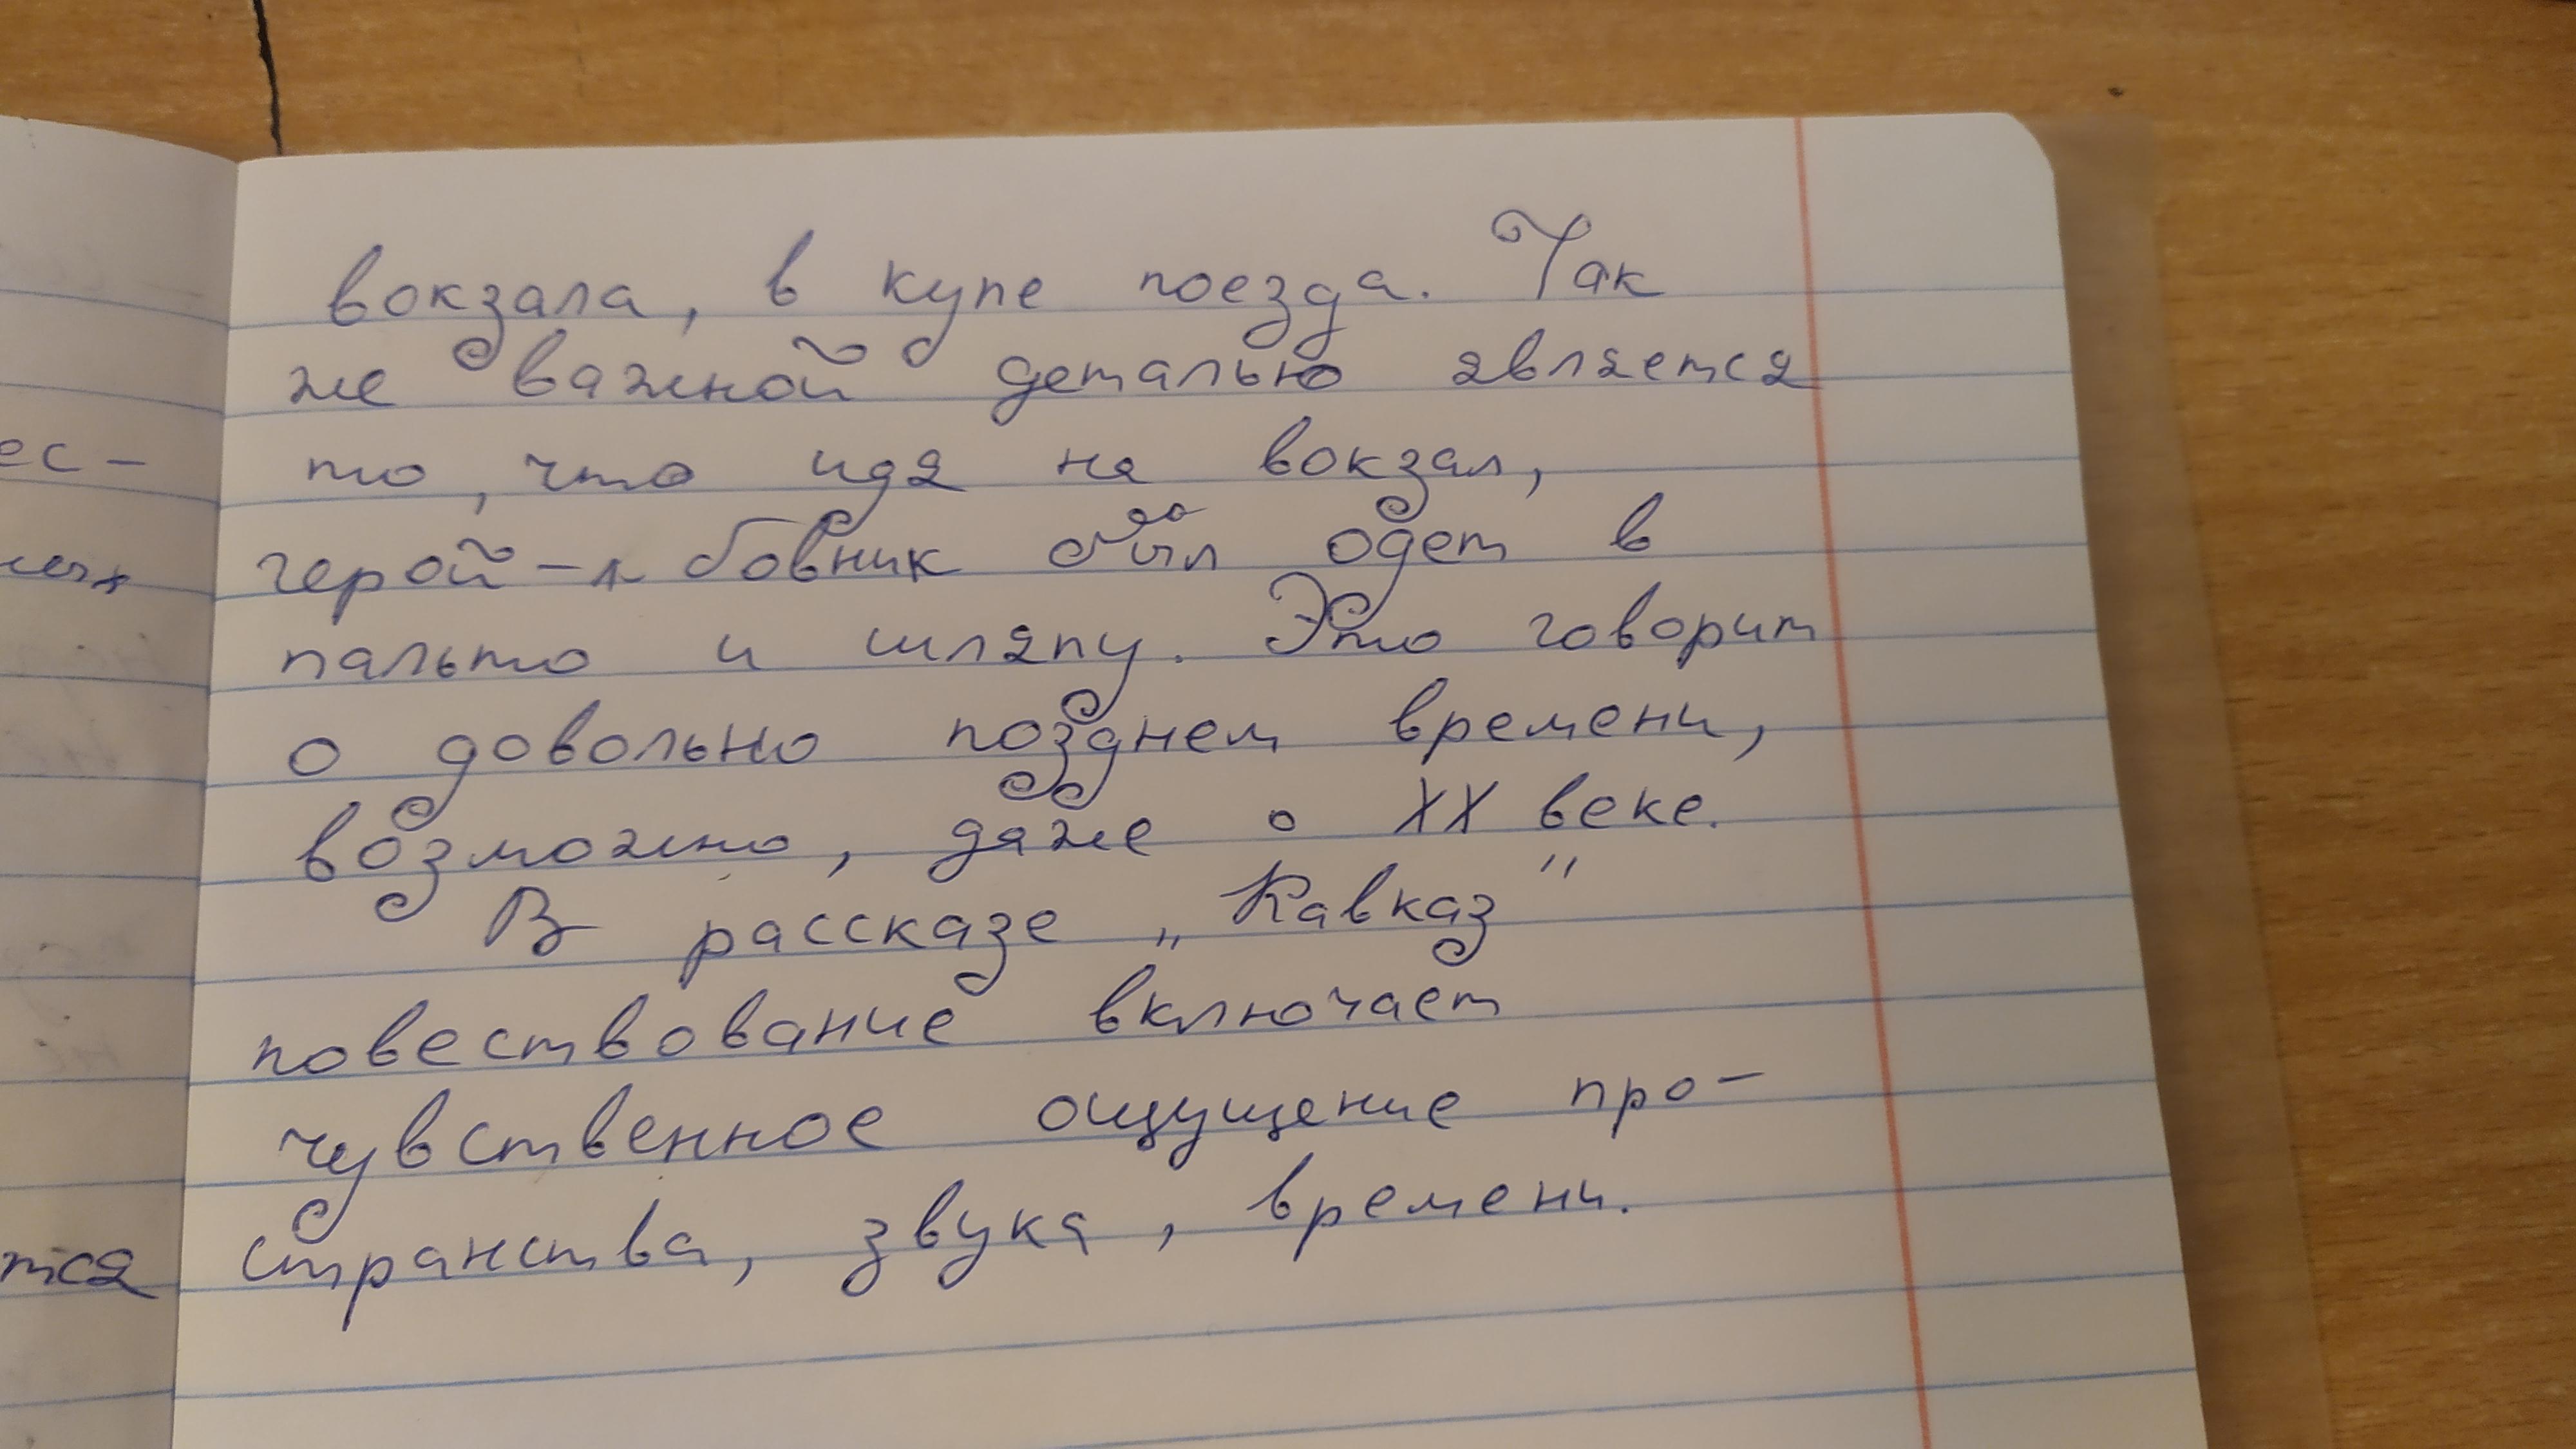 вокзала, в купе поезда. Так
же важной деталью является
то, что идя на вокзал,
герой-л бовник был одет в
пальто и шляпу. Это говорит
о довольно позднем времени,
возможно, даже о XX веке.
В рассказе „Кавказ"
повествование включает
чувственное ощущение про-
странства, звука, времени.
ес-
тся